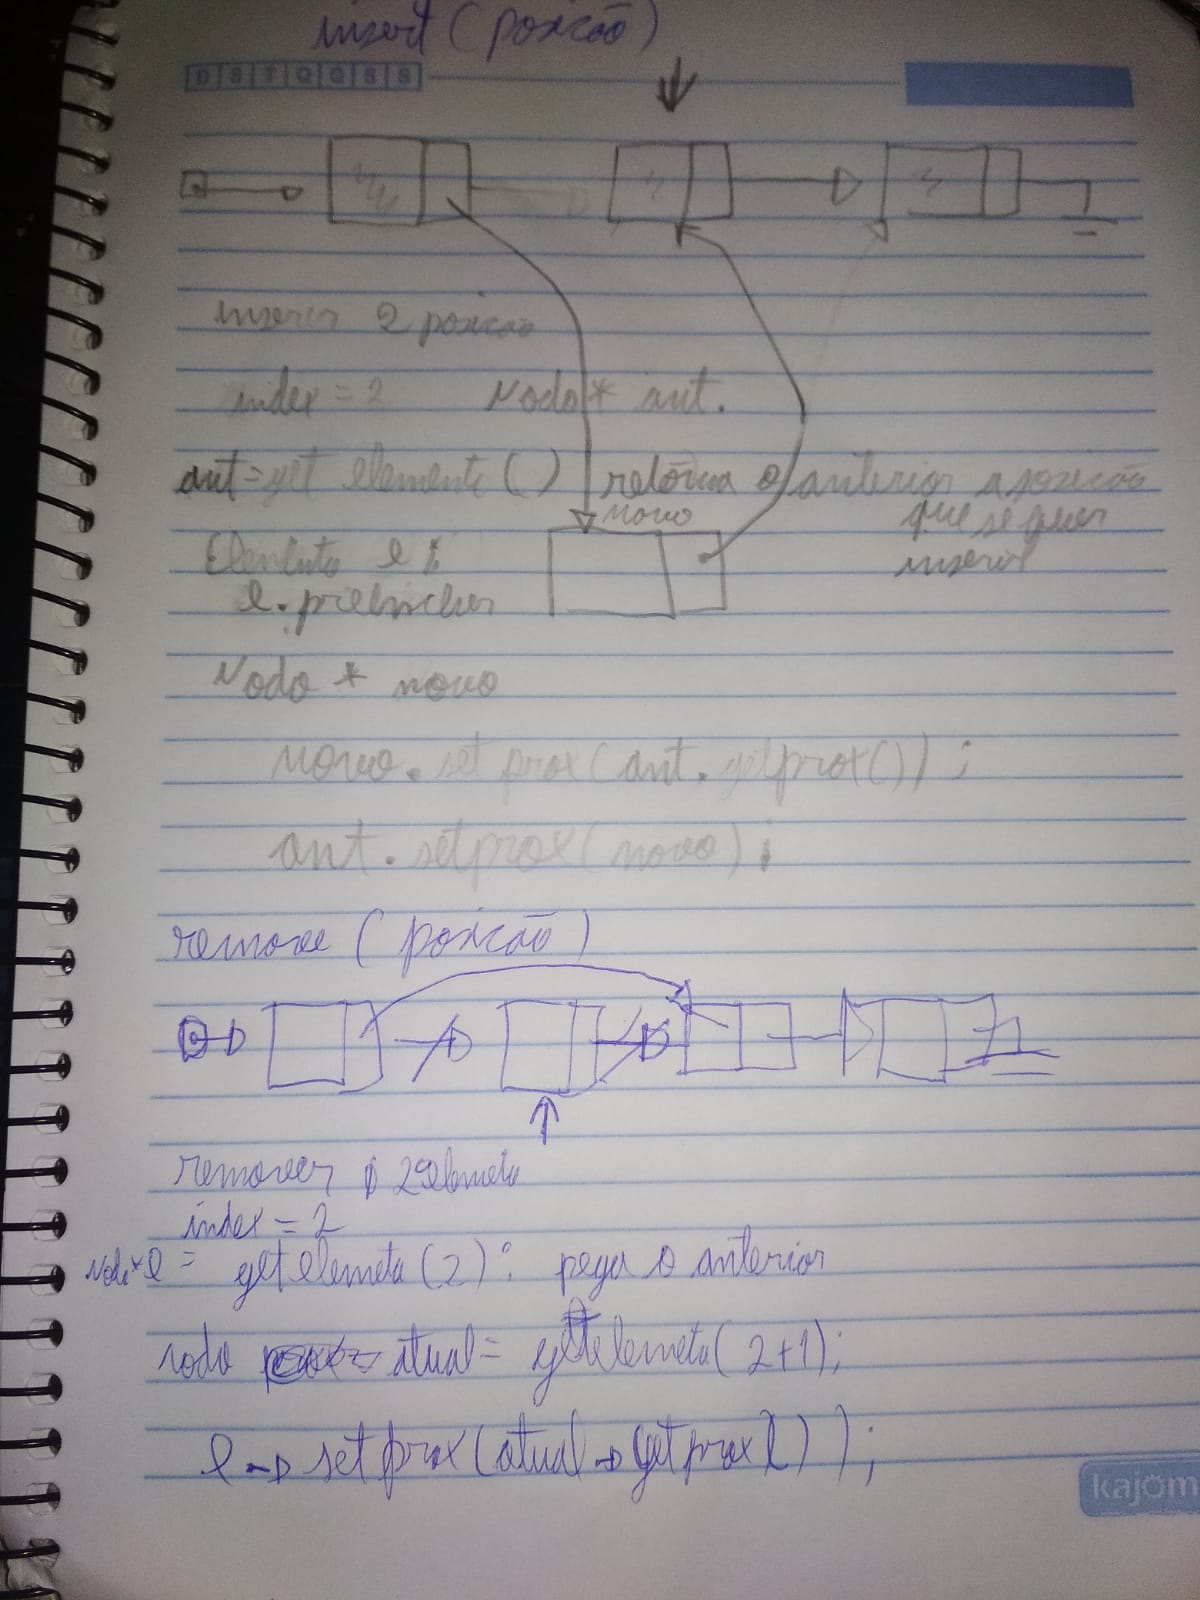 insert (posicão)
D S T Q Q S S
inserir 2 posicão
index = 2 Nodo * ant.
ant = get elemento ( ) retorna o anterior a posicão
novo que se quer
Elemento e ; inserir
e. preencher
Nodo * novo
novo. set prox (ant. getprox( ) ) ;
ant. setprox ( novo ) ;
remove ( posicão )
remover o 2º elemeto
index = 2
Nodo * e = get elemeto (2) : pega o anterior
nodo atual = get elemeto ( 2+1 );
e -> set prox (atual -> get prox ( ) ) ;
kajom